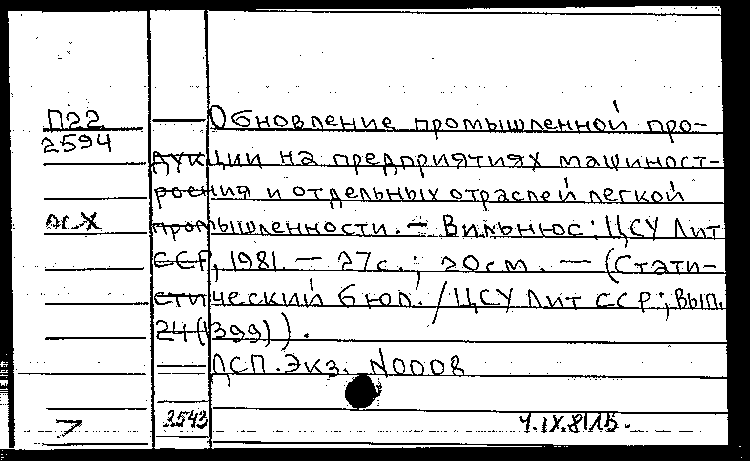 П22
2594
Обновление промышленной про-
дукции на предприятиях машиност-
роения и отдельных отраслей легкой
промышленности. — Вильнюс: ЦСУ Лит
ССР, 1981. — 27с.; 20см. — (Стати-
стический бюл. / ЦСУ Лит ССР; Вып.
24(1399)).
ДСП. Экз. N0008
2543